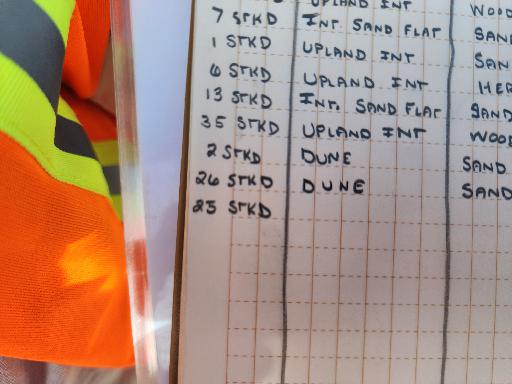 UPLAND INT WOOD
7 STKD INT. SAND FLAT SAND
1 STKD UPLAND INT SAN
6 STKD UPLAND INT HER
13 STKD INT. SAND FLAT SAND
35 STKD UPLAND INT WOOD
2 STKD DUNE SAND
26 STKD DUNE SAND
25 STKD